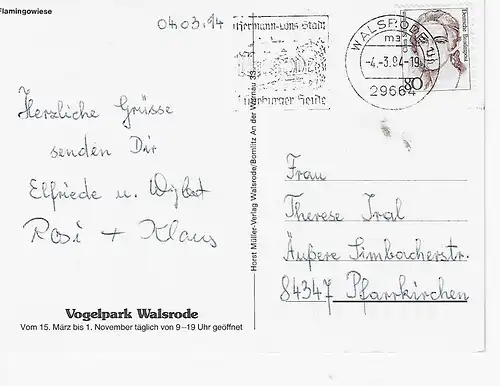 Flamingowiese
04.03.94
Hermann-Löns-Stadt
Lüneburger Heide
WALSRODE 1
ma
-4.-3.94-19
29664
Deutsche Bundespost
80
Herzliche Grüsse
senden Dir
Elfriede u.
Rosi + Klaus
Vogelpark Walsrode
Vom 15. März bis 1. November täglich von 9–19 Uhr geöffnet
Horst Müller-Verlag Walsrode/Bomlitz An der Warnau 33
Frau
Therese Iral
Äußere Simbacherstr.
84347 Pfarrkirchen